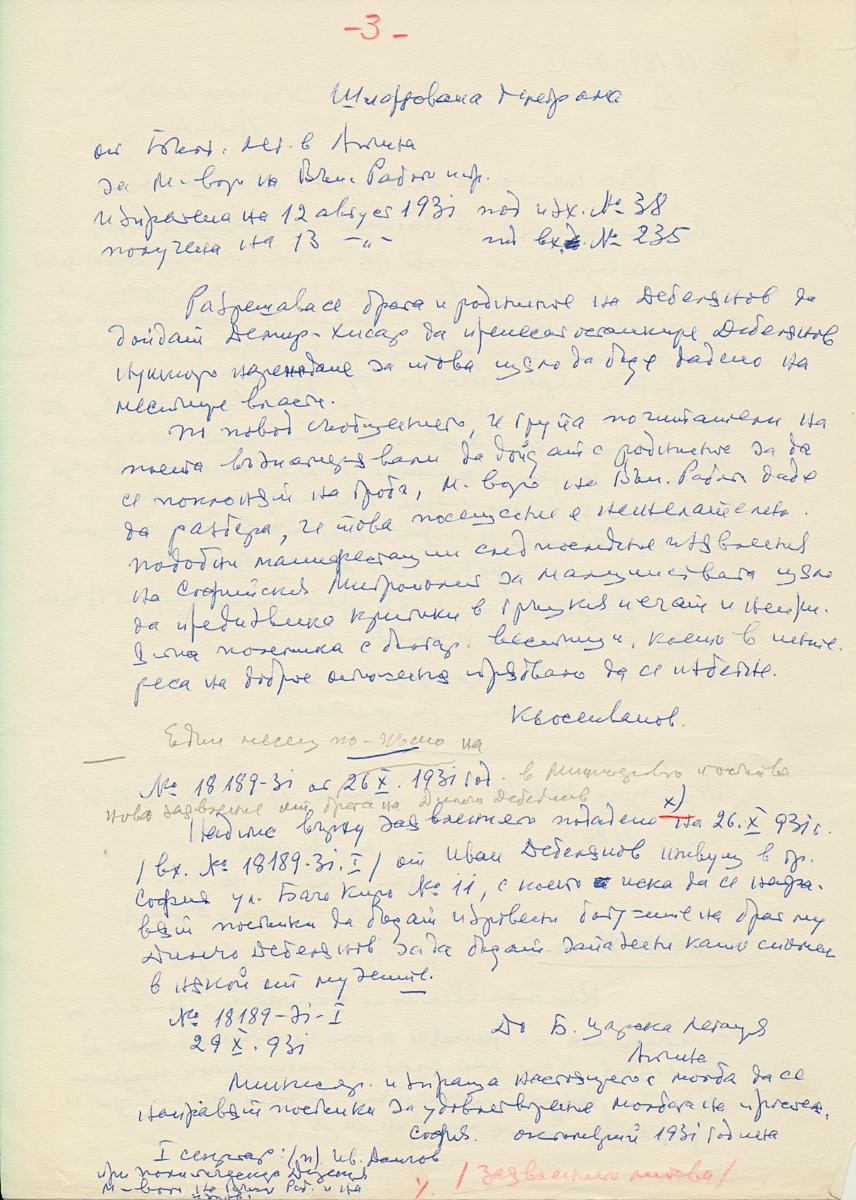 -3-
Шифрована телеграма
от Бълг. лег. в Атина
за М-вото на Вън. Работи
изпратена на 12 август 1931 под изх. № 38
получена на 13 -„- под вх. № 235
Разрешава се брата и роднините на Дебелянов да
дойдат Демир-Хисар да пренесат останките Дебелянов
нужното нареждане за това щяло да бъде дадено на
местните власти.
По повод съобщението, че група почитатели на
поета възнамерявали да дойдат с роднините за да
се поклонят на гроба, М-вото на Вън. Работи даде
да разбера, че това посещение е нежелателно.
Подобни манифестации след последните изявления
на Софийския Митрополит за малцинствата щяло
да предизвика критики в гръцкия печат и непри-
ятна полемика с българ. вестници, което в инте-
реса на добрите отношения трябвало да се избегне.
Кьосеиванов.
Един месец по-късно на
№ 18189-31 от 26 X. 1931 год. в Министерството постъпва
ново заявление от брата на Димчо Дебелянов
Надпис върху заявлението подадено x) на 26. X 931 г.
/вх. № 18189-31. I/ от Иван Дебелянов живущ в гр.
София ул. Бачо Киро № 11, с което иска да се напра-
вят постъпки да бъдат изпроводени ботушите на брат му
Димчо Дебелянов за да бъдат запазени като спомен
в някой от музеите.
№ 18189-31-I
29 X. 931
До Б. Царска Легация
Атина
Министер. изпраща настоящето с молба да се
направят постъпки за удовлетворение молбата на
София. октомврий 1931 година
I секретар: (п) Ив. Данчов
при политическа Дирекция
М-вото на Външ. Раб. и на
/Заявлението